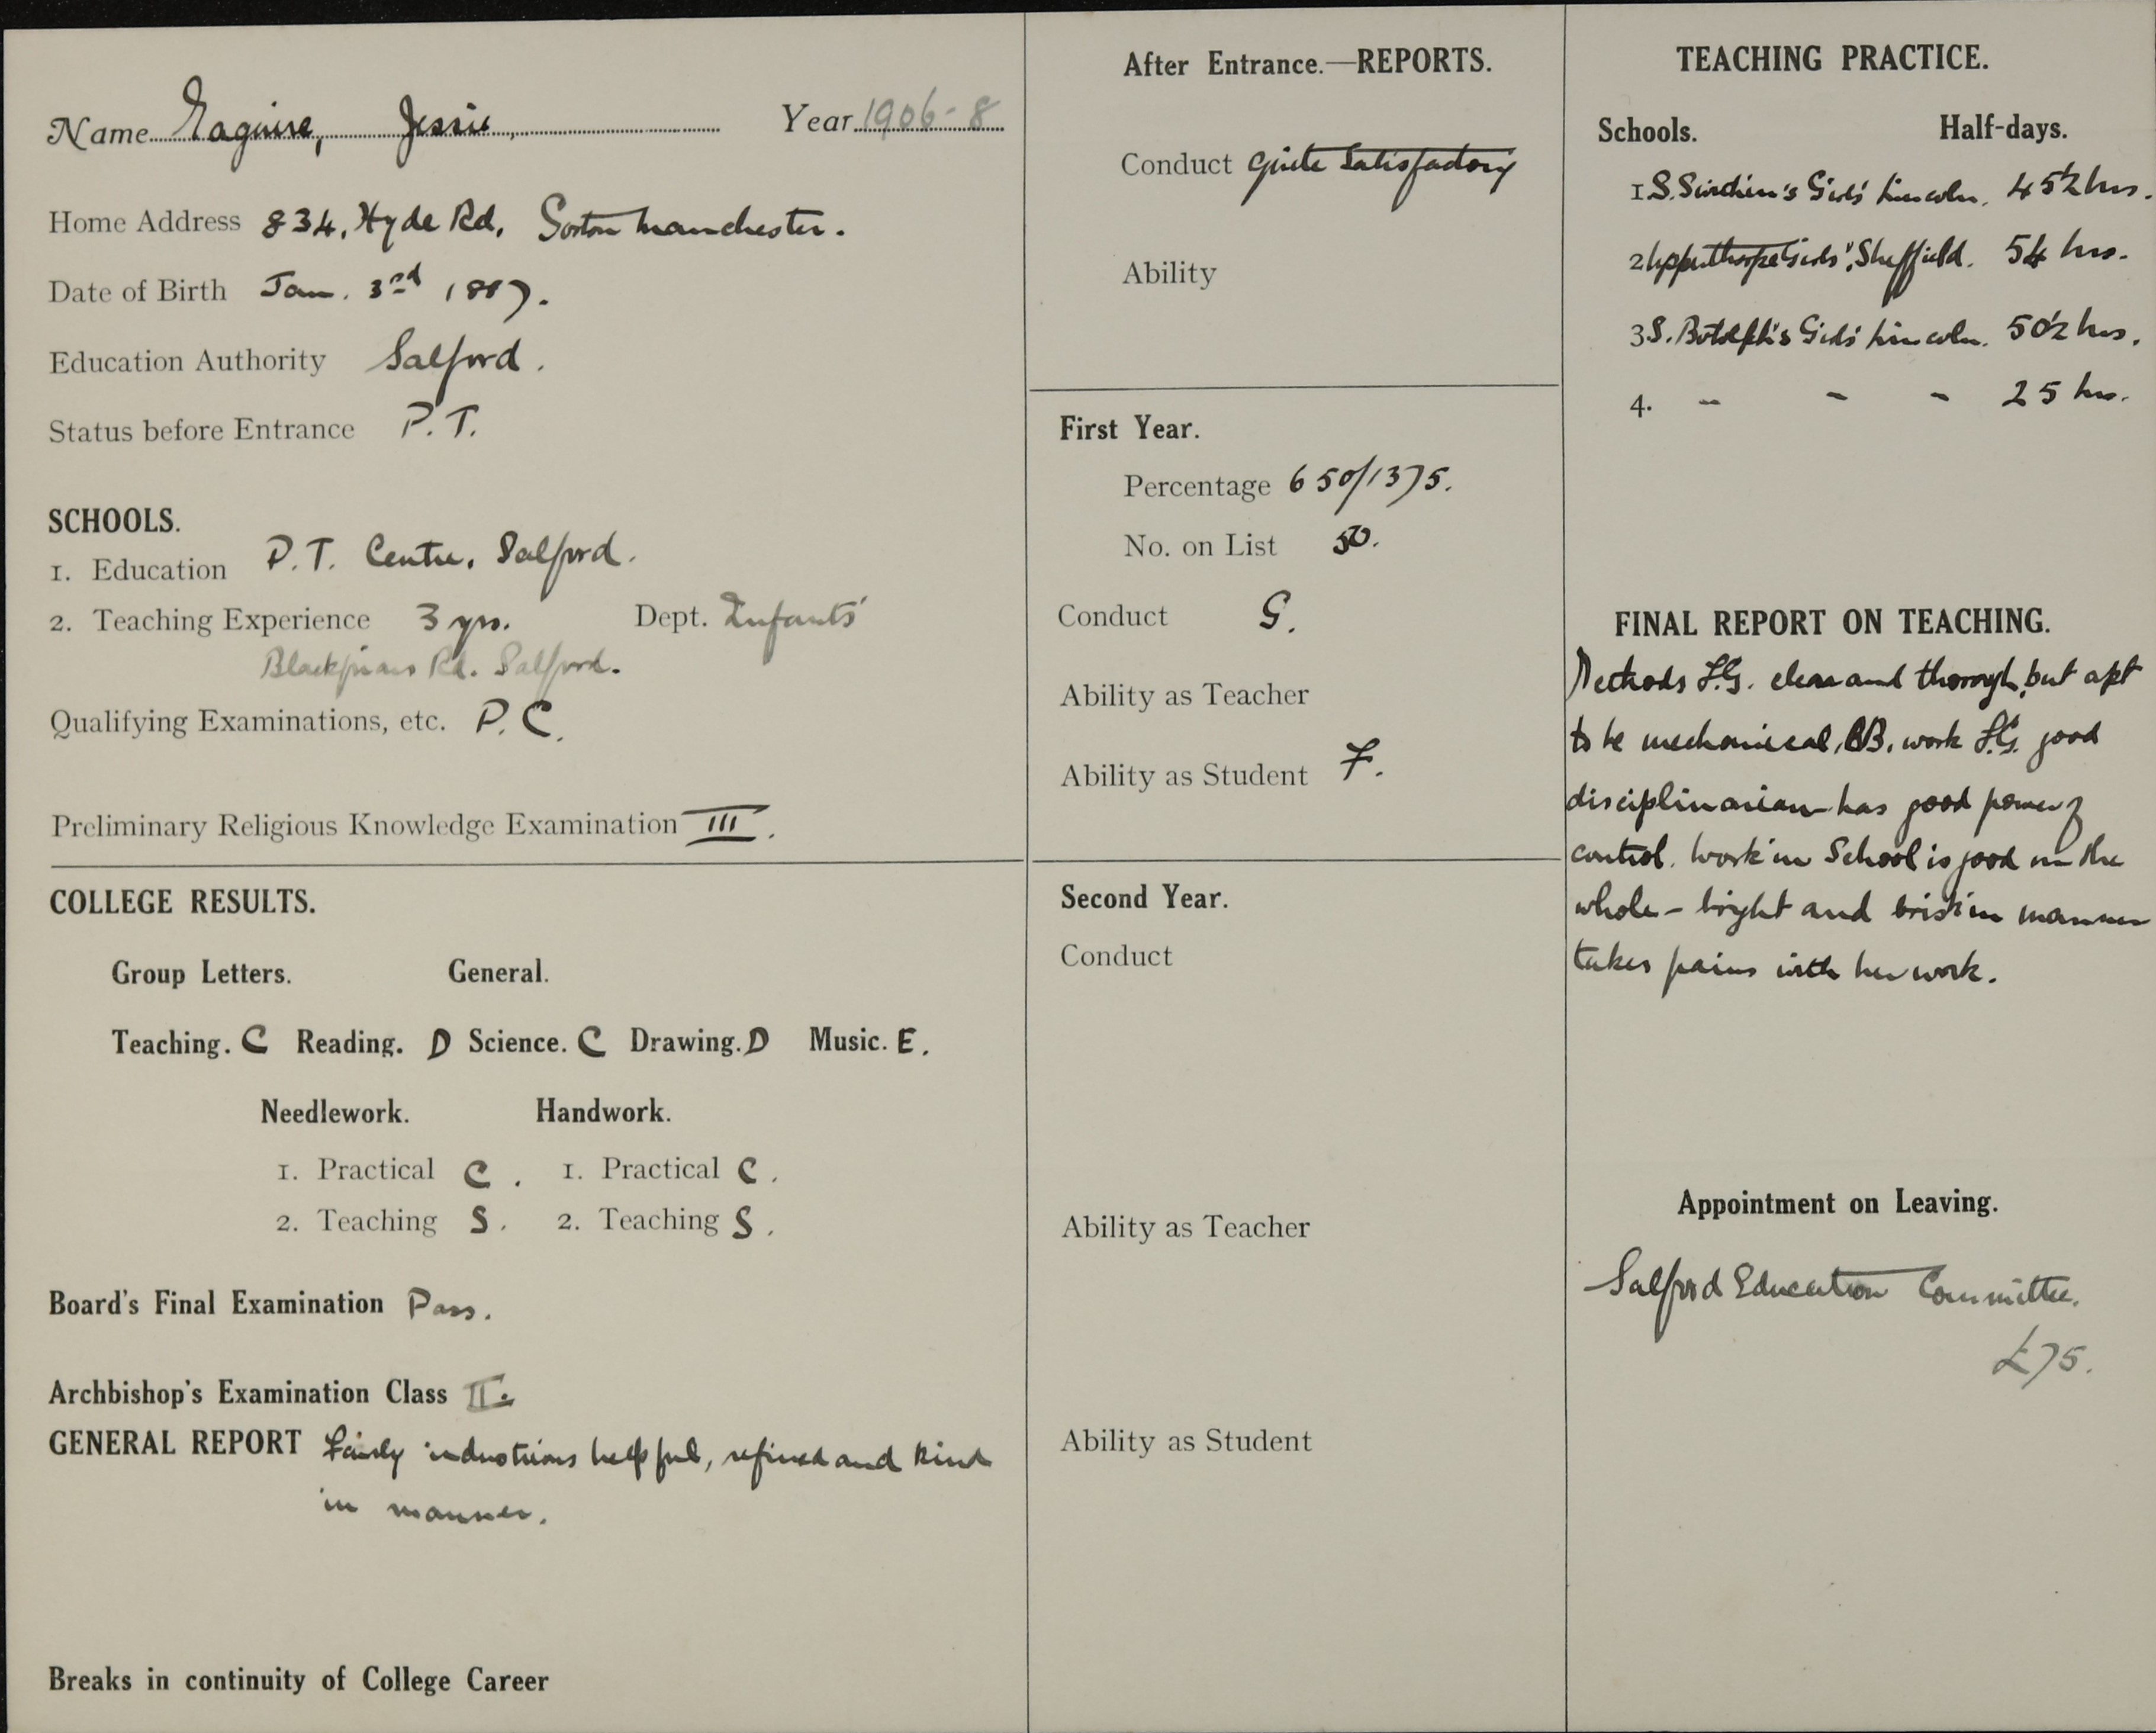 Name Eaguire, Jessie, Year 1906-8
Home Address 834, Hyde Rd, Gorton Manchester.
Date of Birth Jan. 3rd 1887.
Education Authority Salford.
Status before Entrance P.T.
SCHOOLS.
1. Education P.T. Centre, Salford.
2. Teaching Experience 3 yrs. Dept. Infants'
Blackfriars Rd. Salford.
Qualifying Examinations, etc. P.C.
Preliminary Religious Knowledge Examination III.
COLLEGE RESULTS.
Group Letters. General.
Teaching. C Reading. D Science. C Drawing. D Music. E.
Needlework. Handwork.
1. Practical C. 1. Practical C.
2. Teaching S. 2. Teaching S.
Board's Final Examination Pass.
Archbishop's Examination Class II.
GENERAL REPORT Fairly industrious helpful, refined and kind
in manner.
Breaks in continuity of College Career
After Entrance.—REPORTS.
Conduct Quite Satisfactory
Ability
First Year.
Percentage 650/1375.
No. on List 50.
Conduct G.
Ability as Teacher
Ability as Student F.
Second Year.
Conduct
Ability as Teacher
Ability as Student
TEACHING PRACTICE.
Schools. Half-days.
1 S. Swithin's Girls' Lincoln. 45½ hrs.
2 Upperthorpe Girls', Sheffield. 54 hrs.
3 S. Botolph's Girls' Lincoln. 50½ hrs.
4. " " " 25 hrs.
FINAL REPORT ON TEACHING.
Methods F.G. clear and thorough, but apt
to be mechanical, BB. work F.G. good
disciplinarian – has good power of
control. Work in School is good on the
whole – bright and brisk in manner
takes pains with her work.
Appointment on Leaving.
Salford Education Committee.
£75.